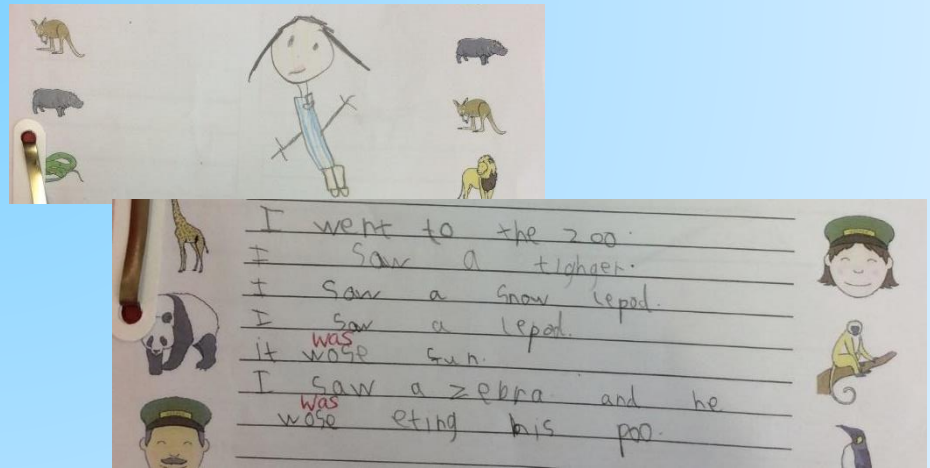 I went to the zoo.
I saw a tighger.
I saw a snow lepod.
I saw a lepod.
was
it wose sun.
I saw a zebra and he
was
wose eting his poo.